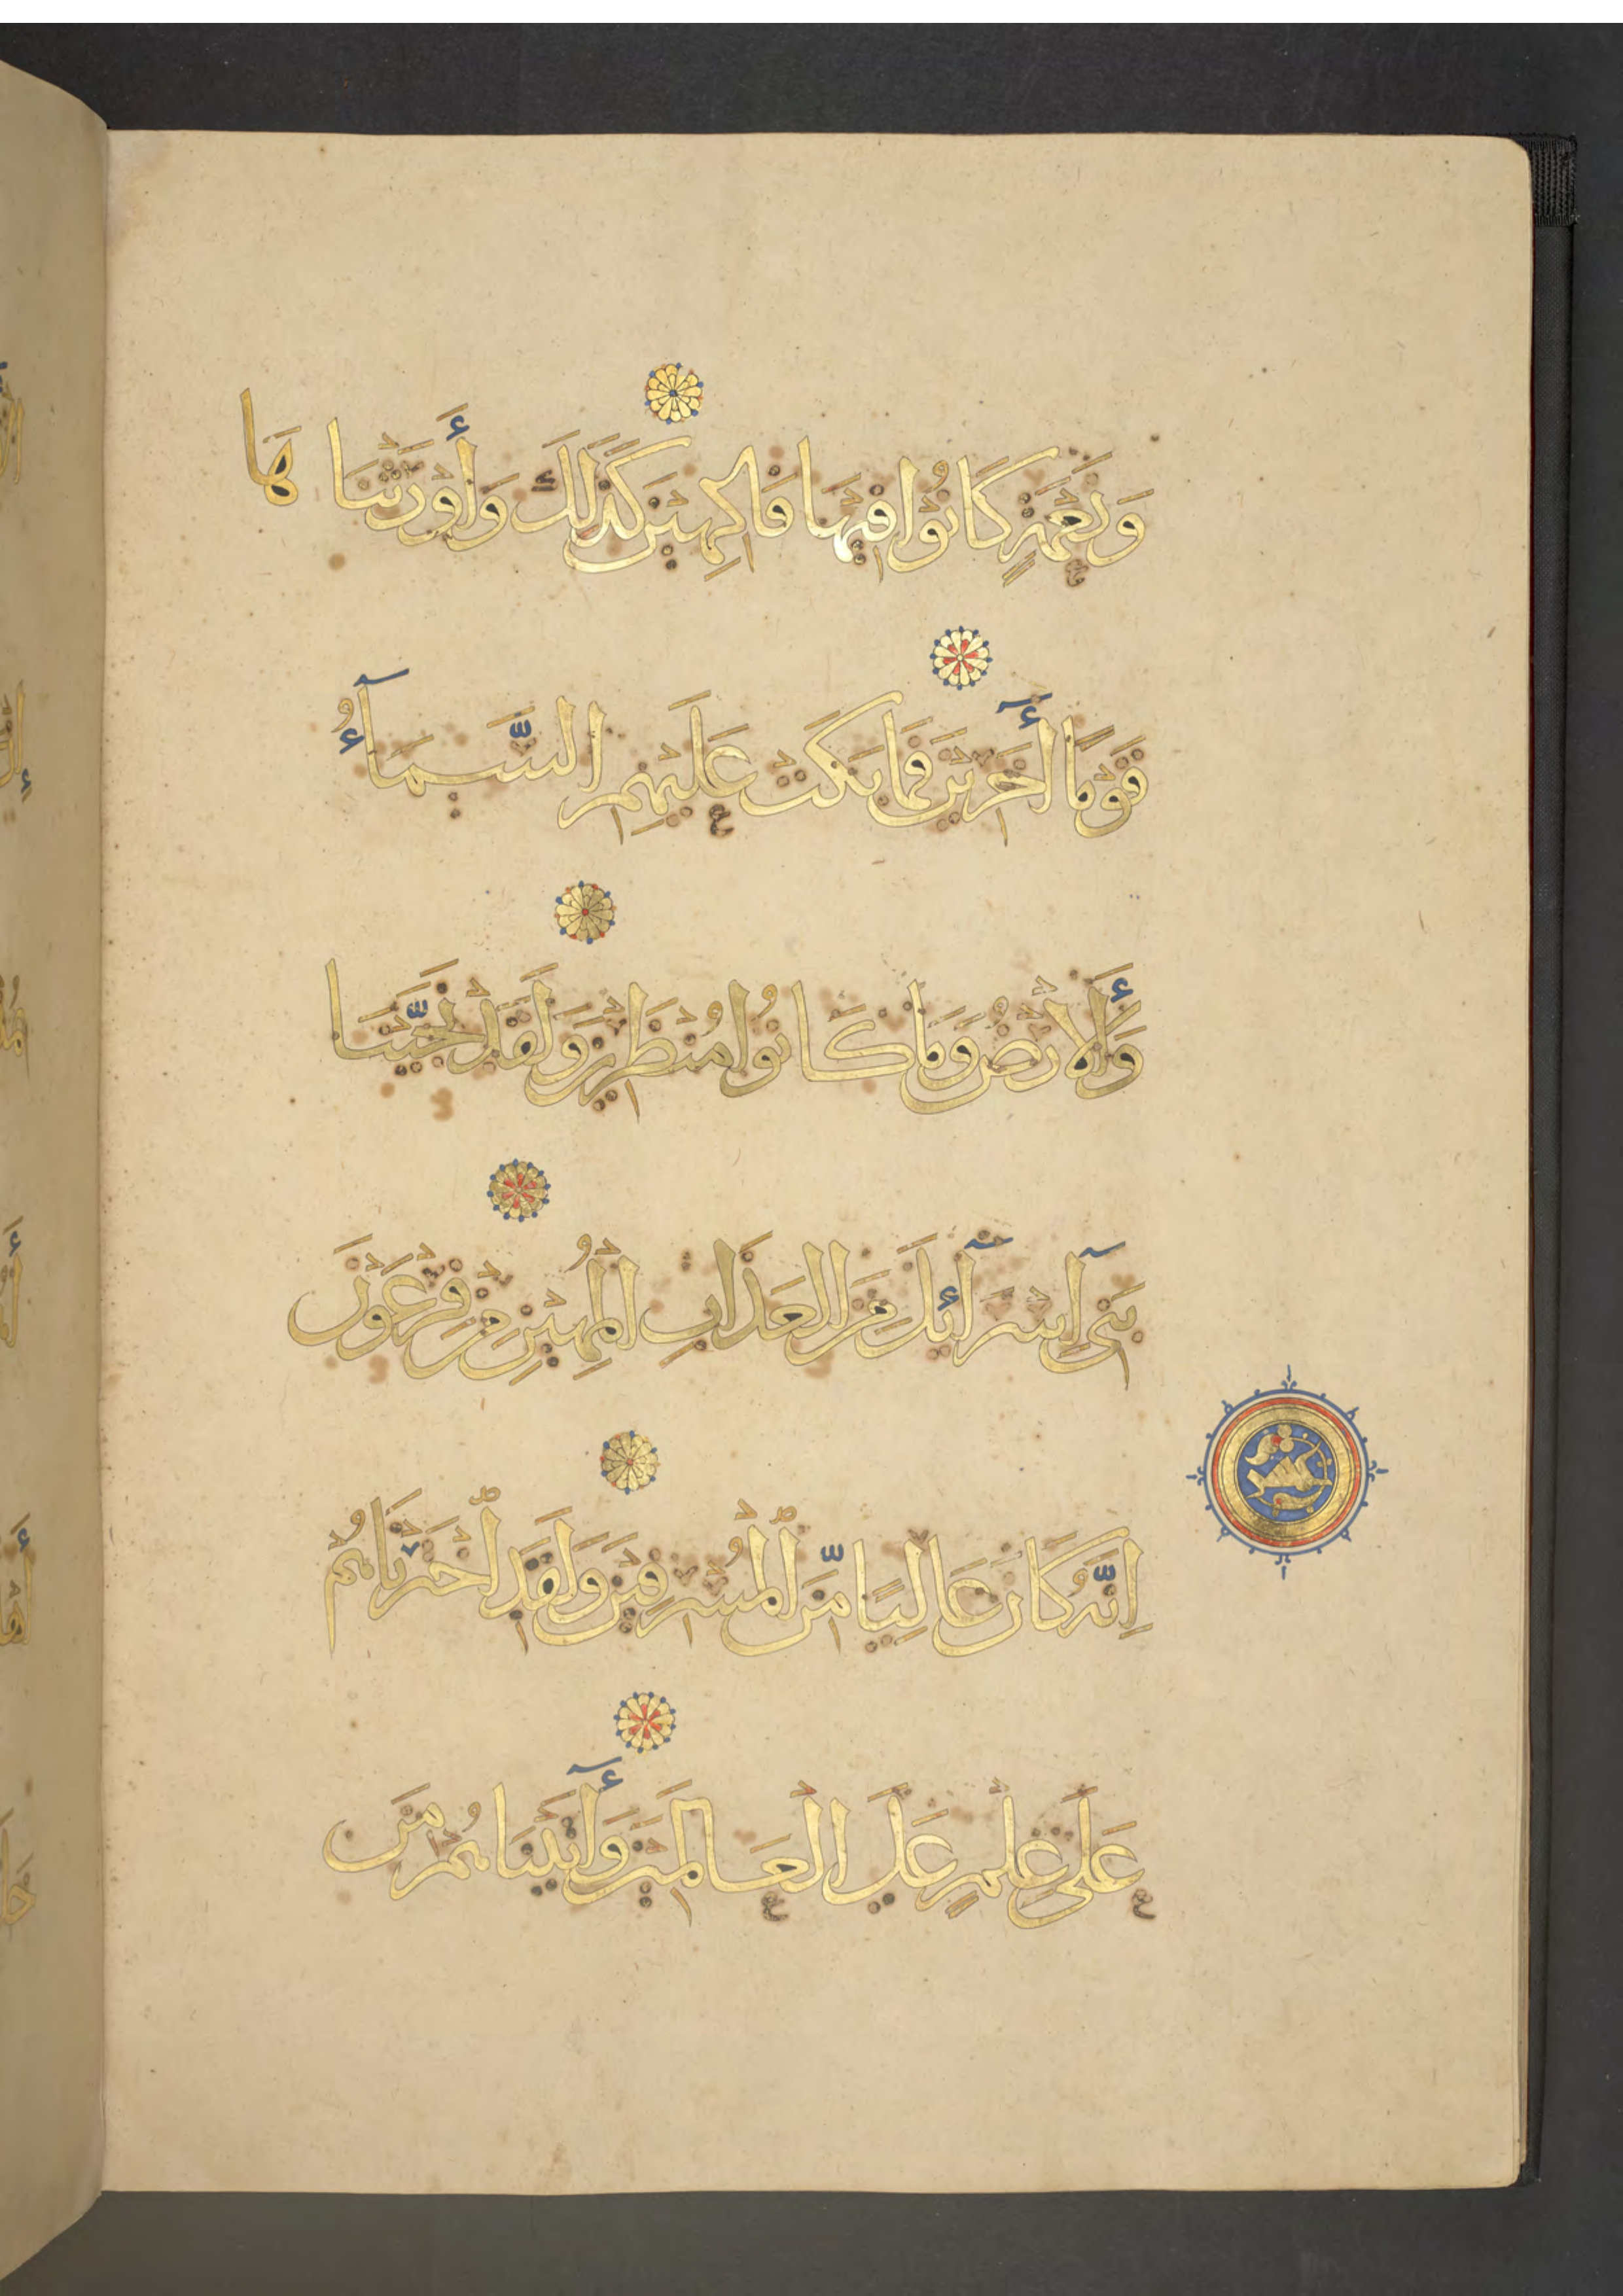 وَنَعْمَةٍ كَانُوْا فِيْهَا فَاكِهِيْنَ كَذَلِكَ وَأَوْرَثْنَاهَا
قَوْمًا أٓخَرِيْنَ فَمَا بَكَتْ عَلَيْهِمِ السَّمَآءُ
وَالْأَرْضُ وَمَا كَانُوا مُنْظَرِيْنَ وَلَقَدْ نَجَّيْنَا
بَنِىٓ اِسْرَآئِلَ مِنَ الْعَذَابِ الْمُهِيْنِ مِنْ فِرْعَوْنَ
اِنَّهُ كَانَ عَالِيًا مِّنَ الْمُسْرِفِيْنَ وَلَقَدِ اخْتَرْنَاهُمْ
عَلَى عِلْمٍ عَلَى الْعَالَمِيْنَ وَأٓتَيْنَاهُمْ مِنَ